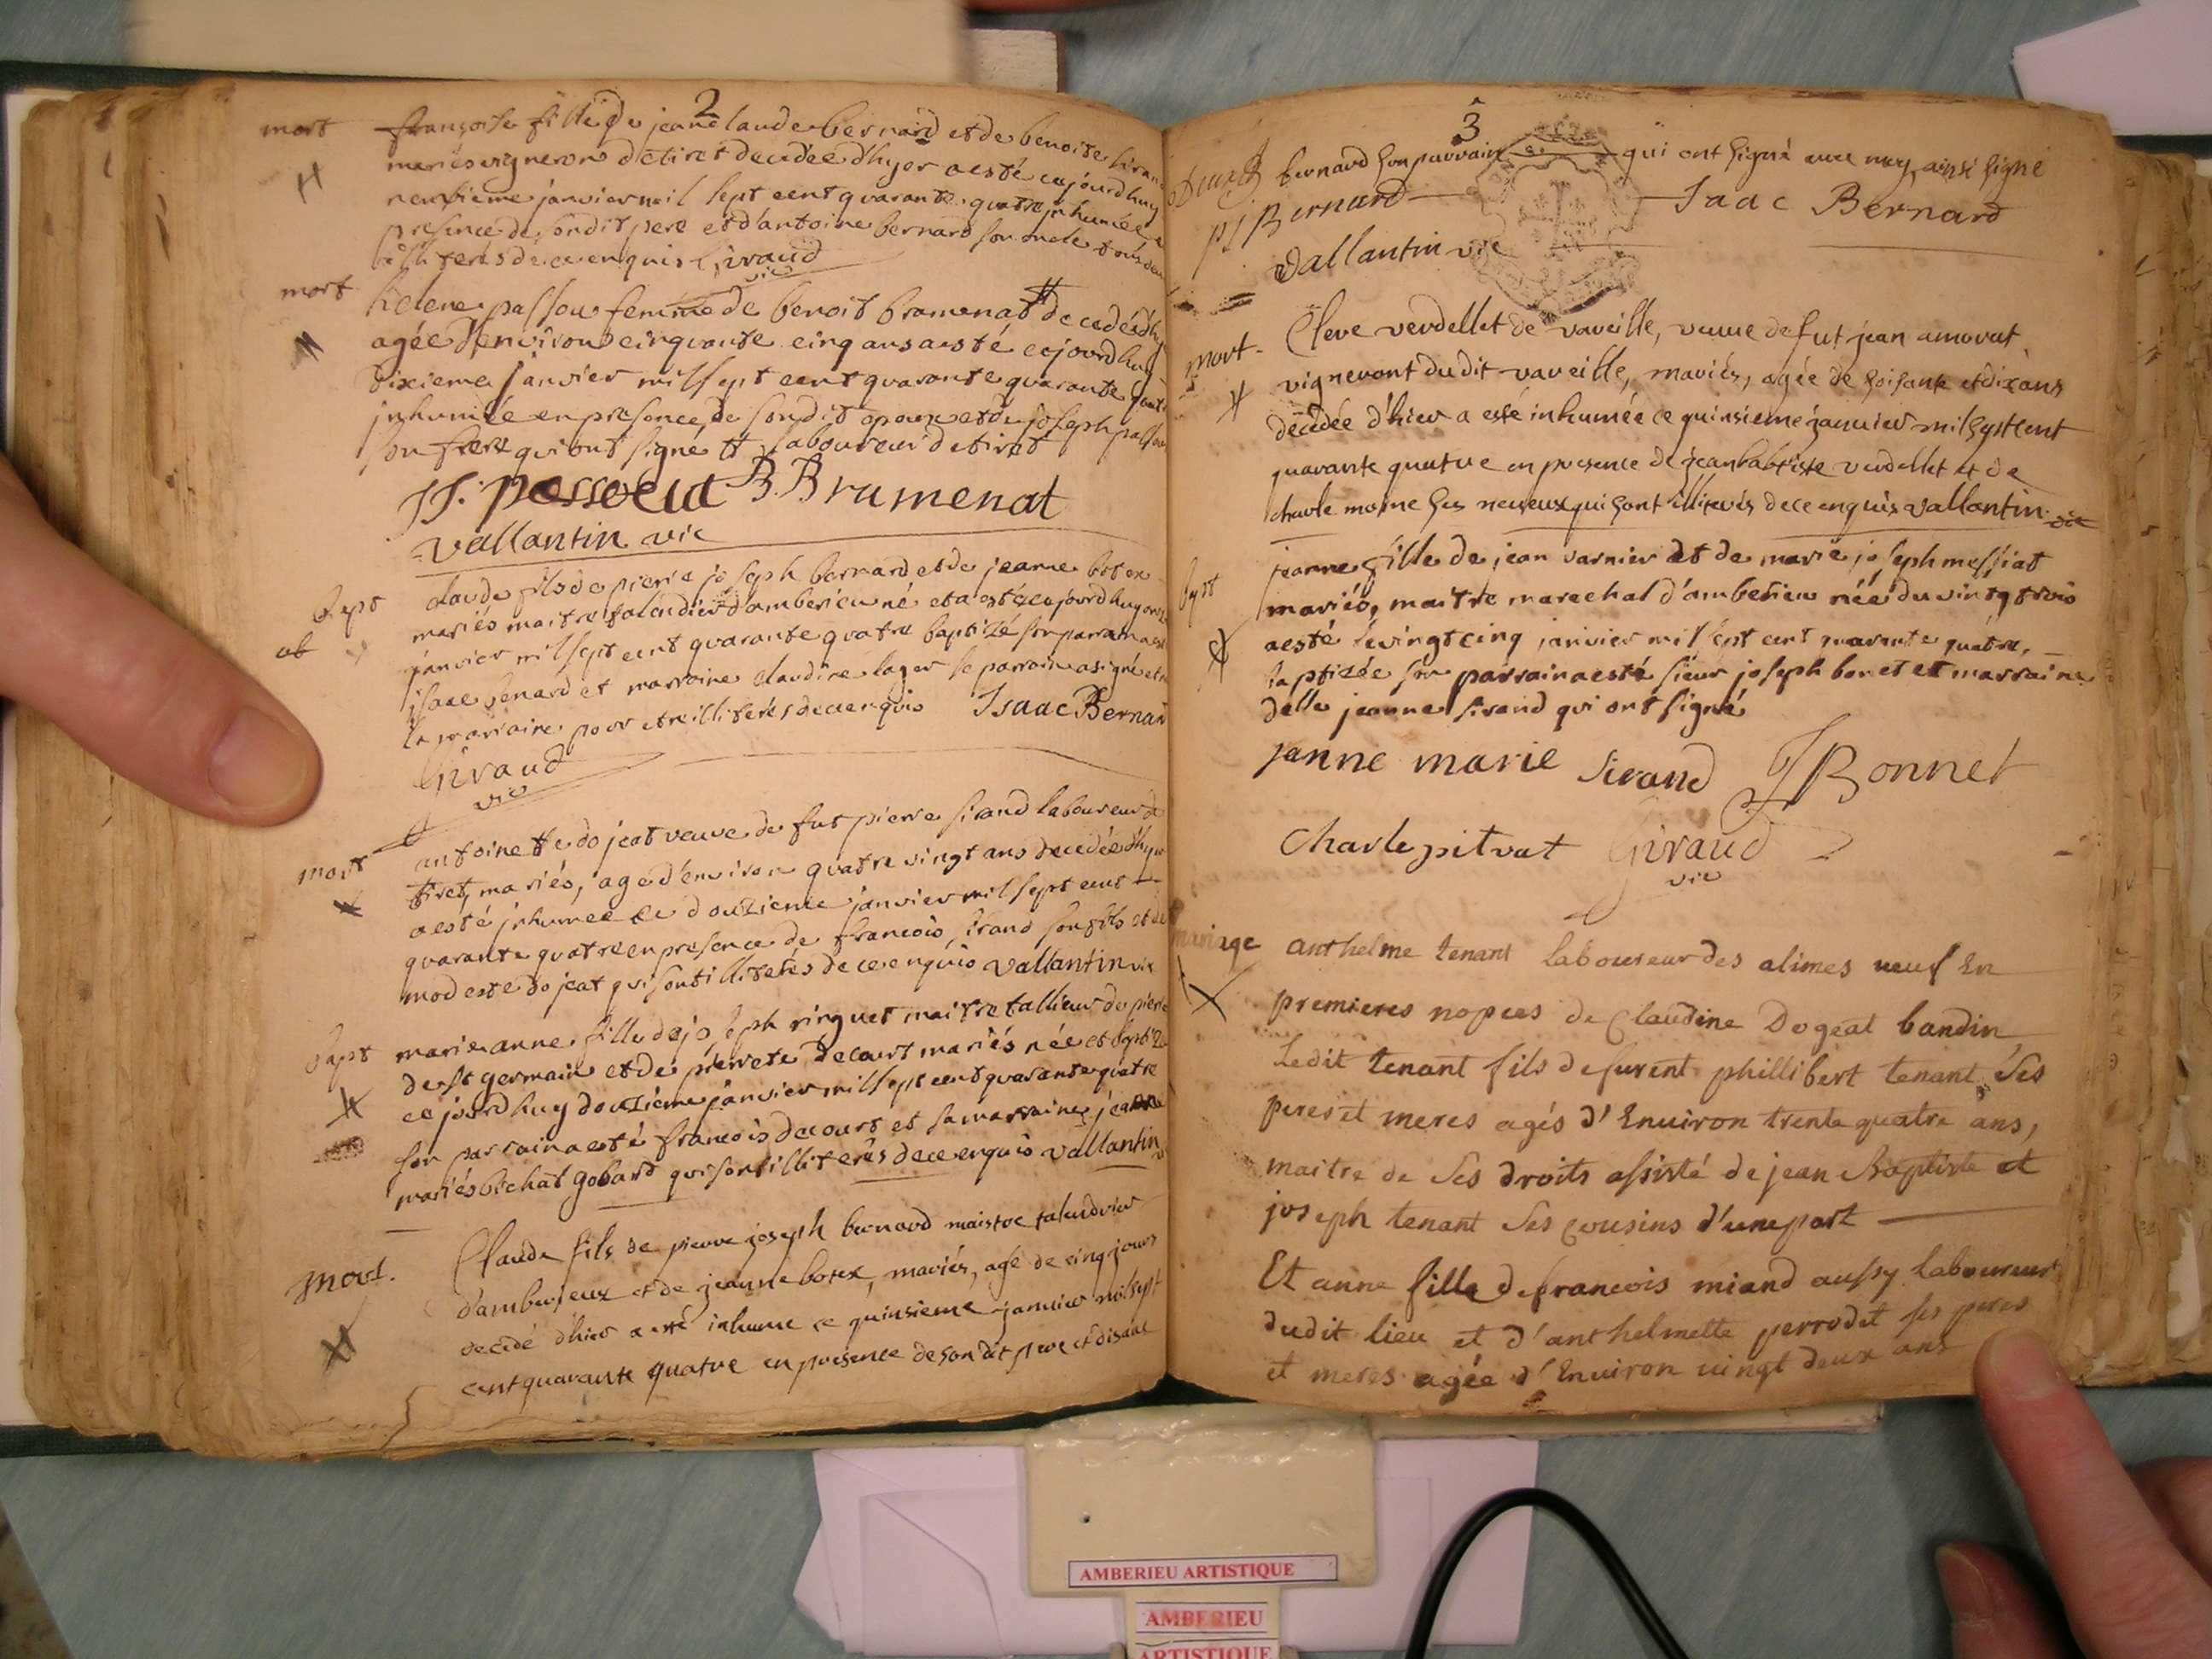 2
mort françoise fille de jean claude bernard et de benoite
mariés vigneron detiret decedee d'hyer a esté cejourdhuy
neuvieme janvier mil sept cent quarante quatre inhumée
presence de sondit pere et d'antoine bernard son oncle
illiterés de ce enquis Giraud
vic
mort helene passou femme de benoit bramenat decedée
agée d'environ cinquante cinq ans a esté cejourdhuy
dixieme janvier mil sept cent quarante quarante
inhumée en presence de sondit epoux et de joseph
son frere qui ont signé laboureur detiret
B. Bramenat
vallantin vic
bapt claude fils de pierre joseph bernard et de jeanne
mariés maitre d'amberieu né et a esté cejourdhuy
ob janvier mil sept cent quarante quatre baptizé son parrain
isaac benard et marraine claudine lager le parrain a signé
la marraine pour etre illiterés de ce enquis Isaac Bernard
Giraud
vic
mort antoinette dojeat veuve de fut pierre sirand laboureur
tiret, mariés, agé d'environ quatre vingt ans decedée d'hyer
a esté inhumée ce douzieme janvier mil sept cent
quarante quatre en presence de francois sirand son fils et de
modeste dojeat qui sont illiterés de ce enquis vallantin vic
bapt marie anne fille de joseph ringuet maitre tallieur de pierre
de st germain et de pierrete decourt mariés née et
ce jourdhuy douzieme janvier mil sept cent quarante quatre
son parrain a esté francois decourt et sa marraine jeanne
mariés bichat gobard qui sont illiterés de ce enquis vallantin
mort. Claude fils de pierre joseph bernard maistre
d'amberieux et de jeanne botex, mariés, agé de cinq jours
decedé d'hier a esté inhumé ce quinsieme janvier mil sept
cent quarante quatre en presence de son dit pere et d'isaac
3
bernard son parrain qui ont signé avec moy ainsi signé
pj Bernard Isaac Bernard
vallantin vic
mort Cleve verdellet de vareille, veuve de fut jean amorat
vigneront dudit vareille, mariés, agée de soisante et dix ans
decedée d'hier a esté inhumée ce quinsieme janvier mil sept cent
quarante quatre en presence de jean babtiste verdellet et de
charle moine ses neveux qui sont illiterés de ce enquis vallantin vic
bapt jeanne fille de jean varnier et de marie joseph messiat
mariés, maitre marechal d'amberieu née du vingt trois
a esté le vingt cinq janvier mil sept cent quarante quatre
baptizée son parrain a esté sieur joseph bonet et marraine
delle jeanne sirand qui ont signé
janne marie sirand J Bonnet
Charle pitrat Giraud
vic
mariage anthelme tenant laboureur des alimes veuf En
premieres nopces de Claudine Dogeat bandin
Ledit tenant fils de furent phillibert tenant Ses
peres et meres agés d'Environ trente quatre ans,
maitre de Ses droits assisté de jean Baptiste et
joseph tenant Ses cousins d'une part
Et anne fille de francois miand aussy laboureur
dudit lieu et d'anthelmette perrodet ses peres
et meres agée d'Environ vingt deux ans
AMBERIEU ARTISTIQUE
AMBERIEU
ARTISTIQUE